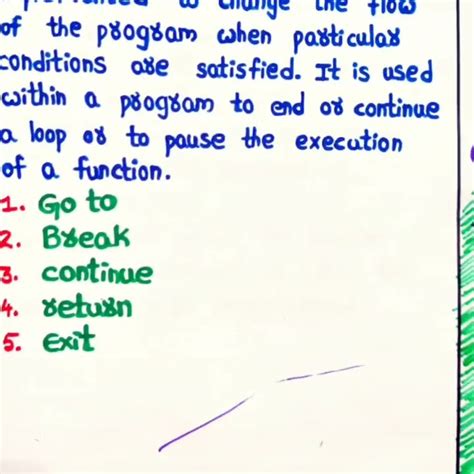 to change the flow
of the program when particular
conditions are satisfied. It is used
within a program to end or continue
a loop or to pause the execution
of a function.
1. Go to
2. Break
3. continue
4. return
5. Exit